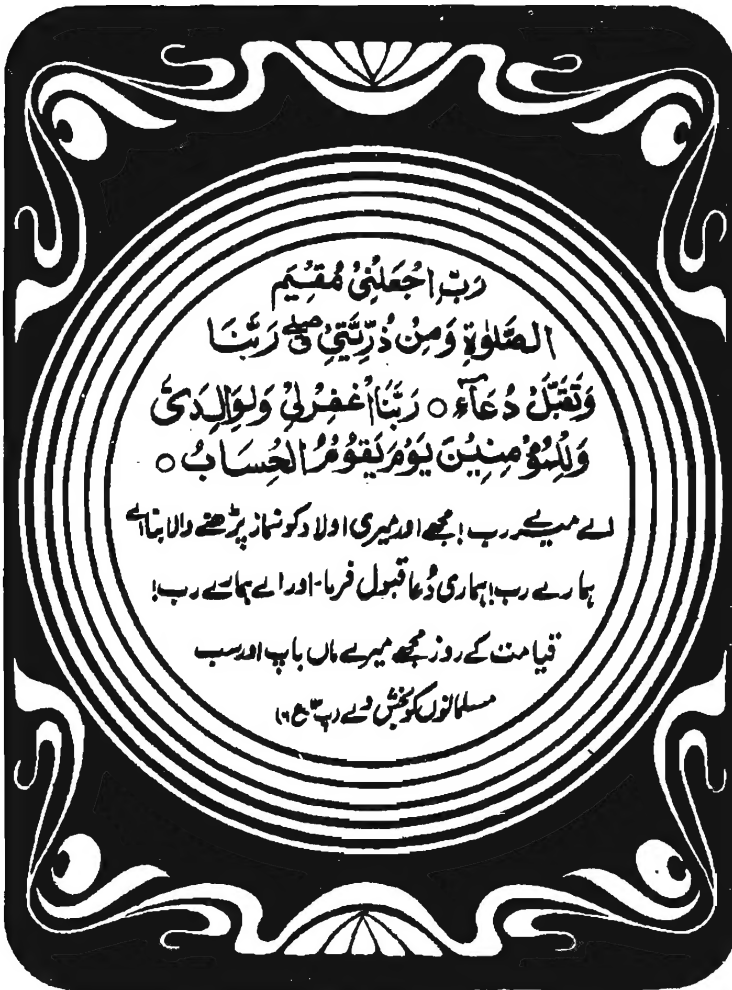 رَبِّ اجْعَلْنِیْ مُقِیْمَ
الصَّلٰوةِ وَمِنْ ذُرِّیَّتِیْ صلے رَبَّنَا
وَتَقَبَّلْ دُعَآءِ ○ رَبَّنَا اغْفِرْلِیْ وَلِوَالِدَیَّ
وَلِلْمُؤْمِنِیْنَ یَوْمَ یَقُوْمُ الْحِسَابُ ○
اے میرے رب! مجھے اور میری اولاد کو نماز پڑھنے والا بنا اے
ہمارے رب! ہماری دُعا قبول فرما۔ اور اے ہمارے رب!
قیامت کے روز مجھے میرے ماں باپ اور سب
مسلمانوں کو بخش دے (پ ع ۶)